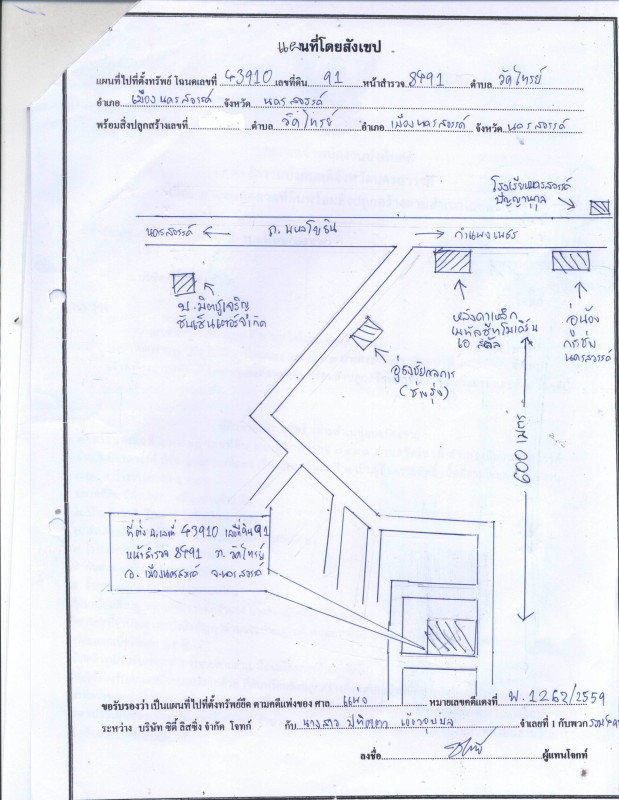 แผนที่โดยสังเขป
แผนที่ไปที่ตั้งทรัพย์ โฉนดเลขที่ 43910 เลขที่ดิน 91 หน้าสำรวจ 8491 ตำบล วัดไทรย์
อำเภอ เมืองนครสวรรค์ จังหวัด นครสวรรค์
พร้อมสิ่งปลูกสร้างเลขที่ ตำบล วัดไทรย์ อำเภอ เมืองนครสวรรค์ จังหวัด นครสวรรค์
โรงเรียนนครสวรรค์
ปัญญานุกูล
นครสวรรค์ ถ. พหลโยธิน กำแพงเพชร
บ. มิตซูเจริญ
หลังคาเหล็ก
เมทัลชีทโมเดิร์น
เอ สตีล
อู่น้อง
การช่าง
นครสวรรค์
600 เมตร
ที่ตั้ง ฉ.เลขที่ 43910 เลขที่ดิน 91
หน้าสำรวจ 8491 ต. วัดไทรย์
อ. เมืองนครสวรรค์ จ.นครสวรรค์
ขอรับรองว่า เป็นแผนที่ไปที่ตั้งทรัพย์ยึด ตามคดีแพ่งของ ศาล แพ่ง หมายเลขคดีแดงที่ พ. 1262/2559
ระหว่าง บริษัท ซิตี้ ลิสซิ่ง จำกัด โจทก์ กับ นางสาว จำเลยที่ 1 กับพวก
ลงชื่อ ผู้แทนโจทก์